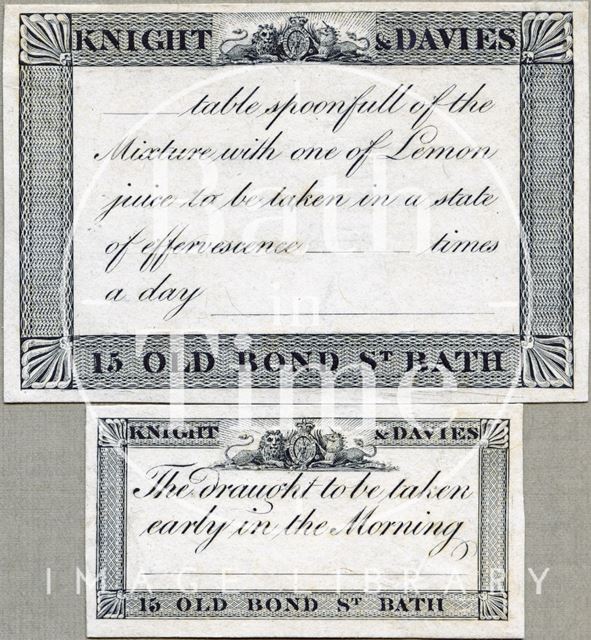 KNIGHT & DAVIES
____ table spoonfull of the
Mixture with one of Lemon
juice to be taken in a state
of effervescence ____ times
a day ____
15 OLD BOND ST BATH
KNIGHT & DAVIES
The draught to be taken
early in the Morning
15 OLD BOND ST BATH
Bath
in
Time
IMAGE LIBRARY